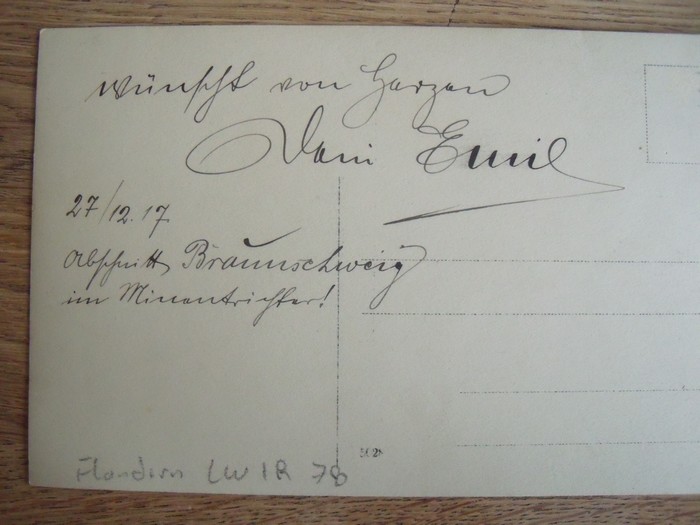 wünscht von Herzen
Dein Emil
27/12.17.
Abschnitt Braunschweig
im Minentrichter!
Flandern LW IR 78